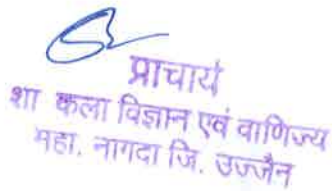 प्राचार्य
शा कला विज्ञान एवं वाणिज्य
महा. नागदा जि. उज्जैन